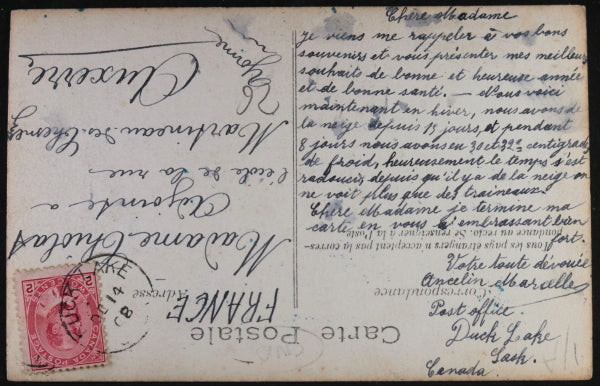 Chère Madame
je viens me rappeler à vos bons
souvenirs et vous présenter mes meilleurs
souhaits de bonne et heureuse année
et de bonne santé. — Nous voici
maintenant en hiver, nous avons de
la neige depuis 15 jours, et pendant
8 jours nous avons eu 30 et 32° centigrades
de froid, heureusement le temps s'est
radouci, depuis qu'il y a de la neige on
ne voit plus que des traineaux.
Chère Madame je termine ma
carte en vous embrassant bien
fort.
Votre toute dévouée
Ancelin Marcelle
Post office.
Duck Lake
Sask.
Canada.
Carte Postale
Correspondance
Adresse
Tous les pays étrangers n'acceptent pas la corres-
pondance au recto. (Se renseigner à la Poste)
FRANCE
Madame
Adjointe à
l'école de la rue
Martineau des Chesnez
Auxerre
Yonne
DUCK LAKE
DE 14
08
CANADA POSTAGE
2 CENTS 2